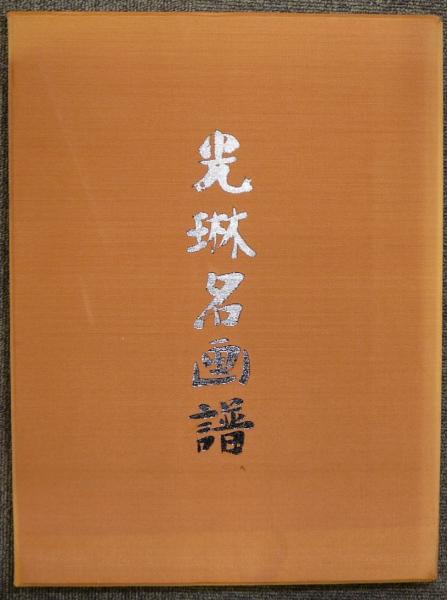 光琳名画譜